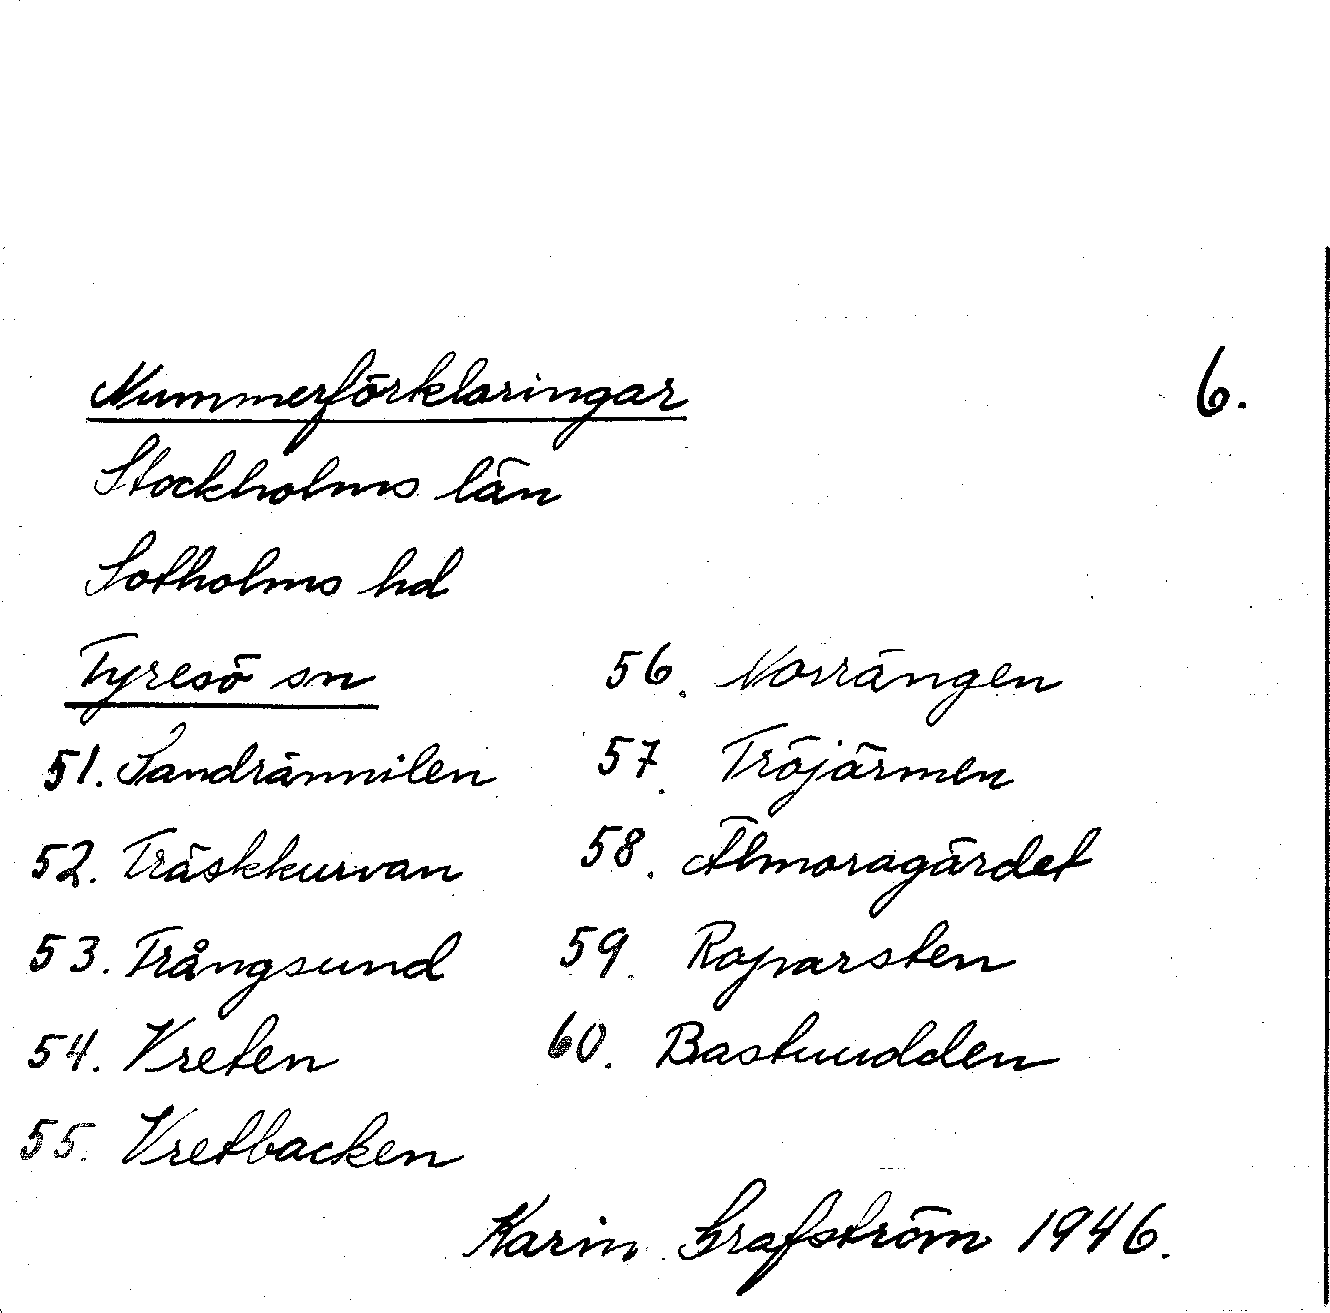 Nummerförklaringar
6.
Stockholms län
Sotholms hd
Tyresö sn
51. Sandrännilen
52. Träskkurvan
53. Trångsund
54. Vreten
55. Vretbacken
56. Norrängen
57. Tröjärmen
58. Älmoragärdet
59. Raparsten
60. Bastuudden
Karin Grafström 1946.